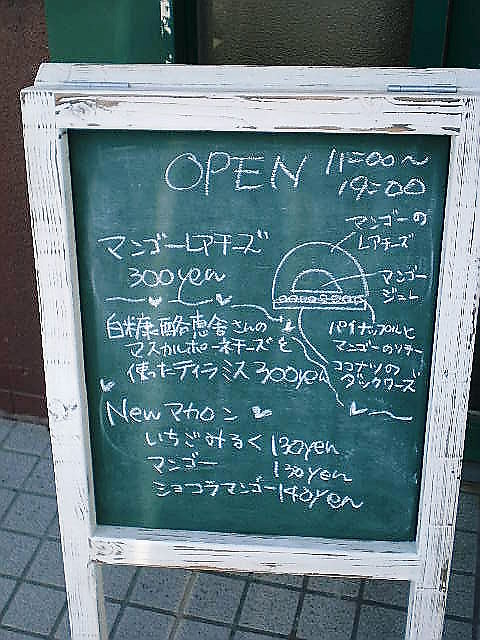 OPEN 11:00〜
19:00
マンゴーレアチーズ
300yen
マンゴーの
レアチーズ
マンゴー
ジュレ
パイナップルと
マンゴーのソテー
ココナツの
ダックワーズ
白糠酪恵舎さんの
マスカルポーネチーズを
使ったティラミス300yen
Newマカロン
いちごみるく130yen
マンゴー 130yen
ショコラマンゴー140yen